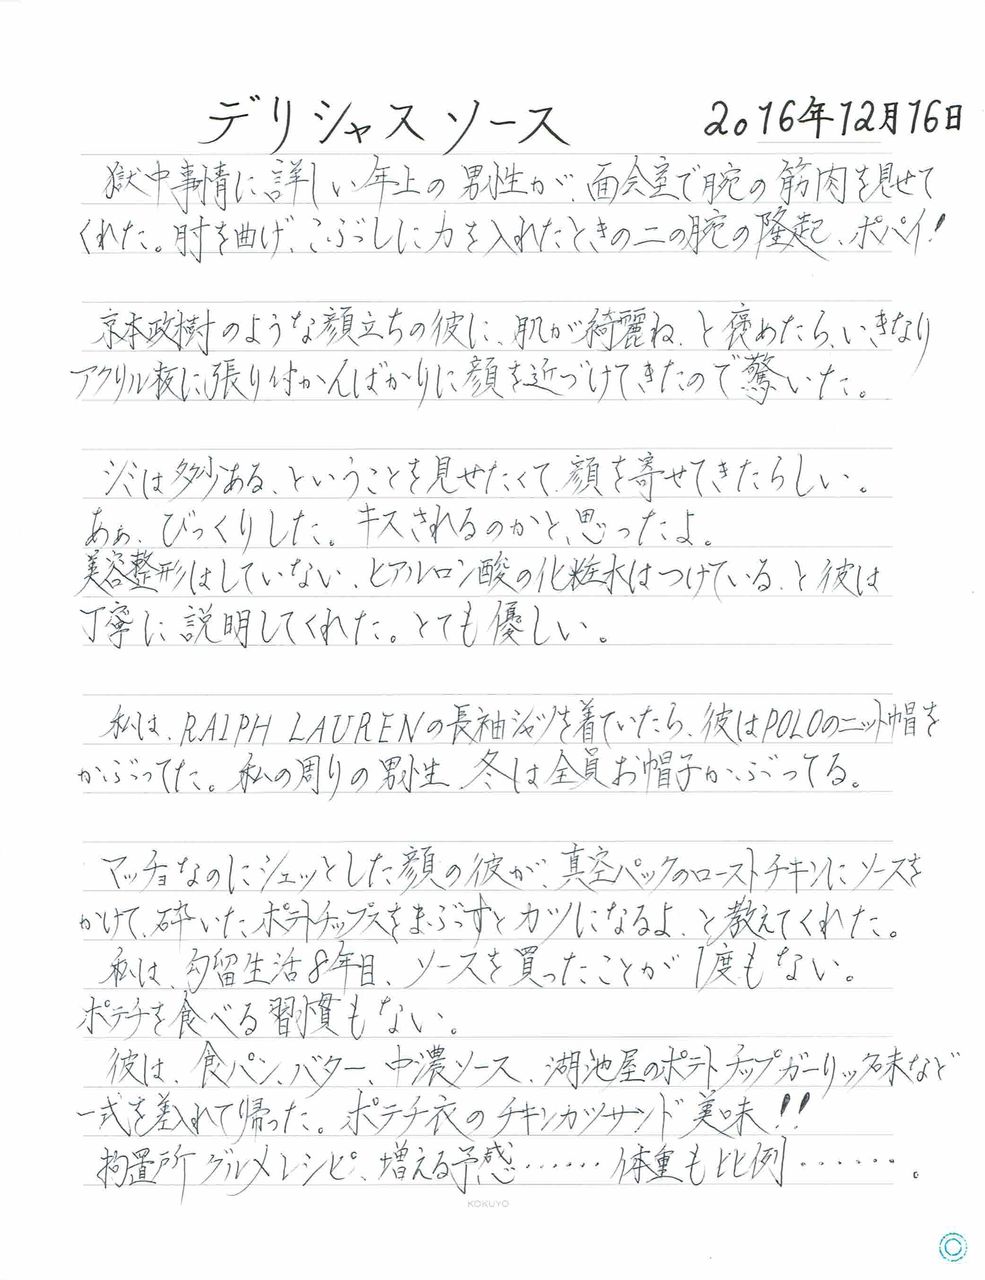 デリシャスソース
2016年12月16日
獄中事情に詳しい年上の男性が、面会室で腕の筋肉を見せて
くれた。肘を曲げ、こぶしに力を入れたときの二の腕の隆起、ポパイ!
京本政樹のような顔立ちの彼に、肌が綺麗ね、と褒めたら、いきなり
アクリル板に張り付かんばかりに顔を近づけてきたので驚いた。
シミは多少ある、ということを見せたくて、顔を寄せてきたらしい。
あぁ、びっくりした。キスされるのかと、思ったよ。
美容整形はしていない、ヒアルロン酸の化粧水はつけている、と彼は
丁寧に説明してくれた。とても優しい。
私は、RALPH LAURENの長袖シャツを着ていたら、彼はPOLOのニット帽を
かぶってた。私の周りの男性、冬は全員お帽子かぶってる。
マッチョなのにシュッとした顔の彼が、真空パックのローストチキンにソースを
かけて、砕いたポテトチップスをまぶすとカツになるよ、と教えてくれた。
私は、勾留生活8年目、ソースを買ったことが1度もない。
ポテチを食べる習慣もない。
彼は、食パン、バター、中濃ソース、湖池屋のポテトチップガーリック味など
一式を差入れて帰った。ポテチ衣のチキンカツサンド美味!!
拘置所グルメレシピ、増える予感……体重も比例……。
KOKUYO